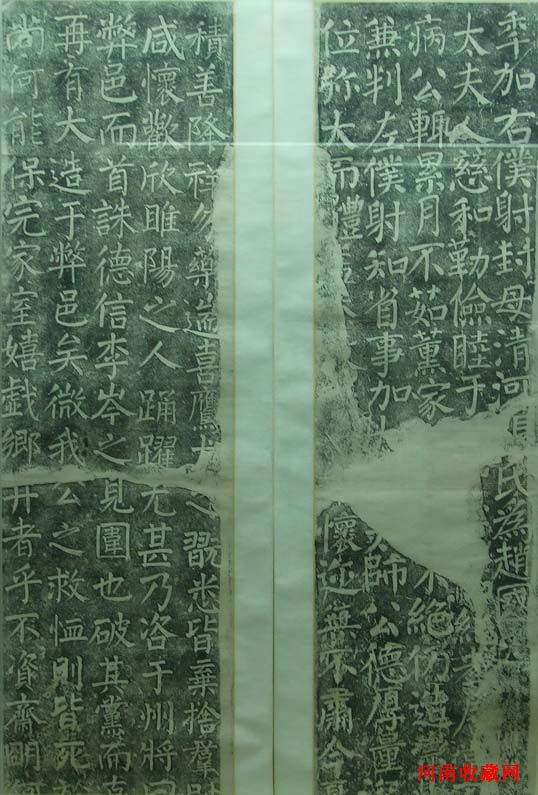 秊加右僕射封母清河氏為趙國
太夫人慈和勤儉睦于
病公輒累月不茹薰家不絕仍造
兼判左僕射知省事加師公德厚量
位弥大而禮懷迩無不肅今
積善降祥勿藥遄喜鷹之翫悉皆棄捨羣
咸懷歡欣睢陽之人踊躍尤甚乃咨于州將
弊邑而首誅德信李岑之見圍也破其黨而
再有大造于弊邑矣微我公之救恤則皆死
尚何能保完家室嬉戲鄉井者乎不資齋明
河南收藏网